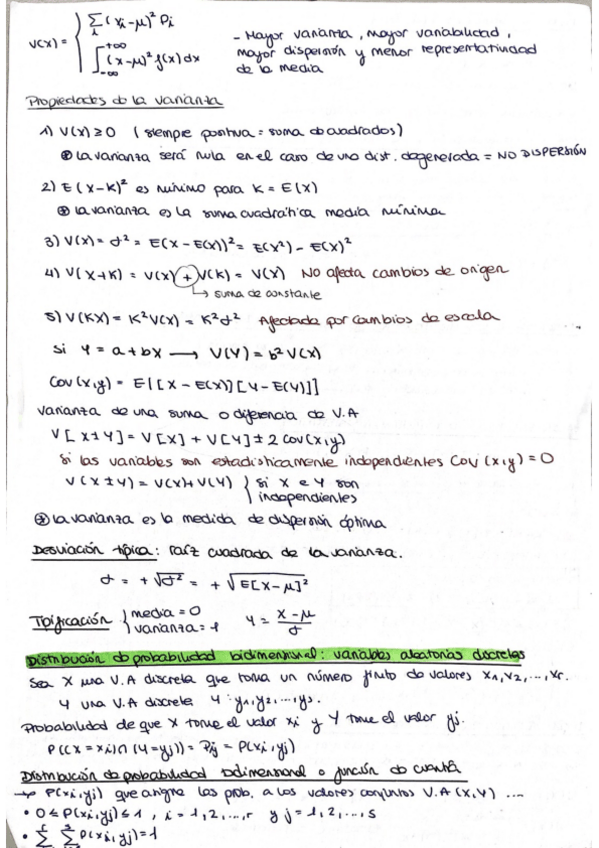 V(X) = { Σi (xi - μ)² Pi
∫-∞+∞ (x - μ)² f(x) dx
- Mayor varianza, mayor variabilidad,
mayor dispersión y menor representatividad
de la media
Propiedades de la varianza
1) V(X) ≥ 0 (siempre positiva = suma de cuadrados)
⊛ La varianza será nula en el caso de una dist. degenerada = NO DISPERSIÓN
2) E(X-K)² es mínimo para K = E(X)
⊛ la varianza es la suma cuadrática media mínima
3) V(X) = σ² = E(X - E(X))² = E(X²) - E(X)²
4) V(X+K) = V(X) + V(K) = V(X) No afecta cambios de origen
↳ suma de constante
5) V(KX) = K² V(X) = K² σ² Afectada por cambios de escala
Si Y = a + bX → V(Y) = b² V(X)
Cov(X,Y) = E[[X - E(X)][Y - E(Y)]]
Varianza de una suma o diferencia de V.A
V[X±Y] = V[X] + V[Y] ± 2 Cov(X,Y)
Si las variables son estadísticamente independientes Cov(X,Y) = 0
V(X±Y) = V(X) + V(Y) } si X e Y son
independientes
⊛ La varianza es la medida de dispersión óptima
Desviación típica: raíz cuadrada de la varianza.
σ = +√σ² = +√E[X-μ]²
Tipificación { media = 0
varianza = 1
Y = (X - μ) / σ
Distribución de probabilidad bidimensional: variables aleatorias discretas
Sea X una V.A discreta que toma un número finito de valores x1, x2, ..., xr.
Y una V.A discreta Y: y1, y2, ..., ys.
Probabilidad de que X tome el valor xi y Y tome el valor yj.
P((X = xi) ∩ (Y = yj)) = Pij = P(xi, yj)
Distribución de probabilidad bidimensional o función de cuantía
→ P(xi, yj) que asigna las prob. a los valores conjuntos V.A (X,Y) ...
• 0 ≤ P(xi, yj) ≤ 1, i = 1, 2, ..., r y j = 1, 2, ..., s
• Σ Σ P(xi, yj) = 1